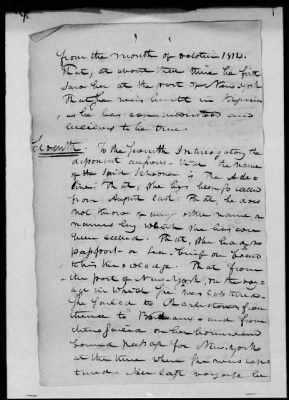 from the month of October 1814.
That, at about that time he first
saw her at the port of New York
That she was built in
as he has understood and
believes to be true.
Eleventh. To the Eleventh Interrogatory the
deponent answers - that the name
of the said Schooner is the Ade-
line: That, She has been so called
from August last. That, he does
not know of any other name or
names by which she has ever
been called. That, She had no
passport or Sea-brief on board
to his knowledge. That from
the port of New York, on the voy-
age in which She was captured.
She Sailed to Charlestown from
thence to Bordeaux - and from
thence Sailed on her homeward
bound passage for New York
at the time when She was cap-
tured. Her last voyage be